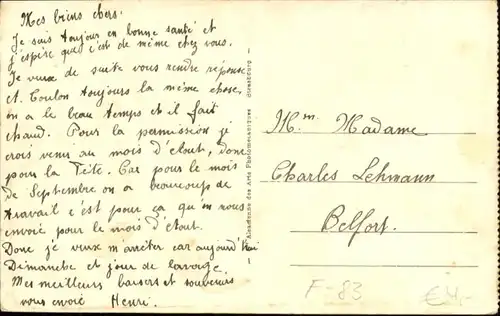 Mes biens chers.
Je suis toujour en bonne santé et
j'espère que c'est de même chez vous.
Je veux de suite vous rendre réponse
et Toulon toujours la même chose,
on a le beau temps et il fait
chaud. Pour la permission je
crois venir au mois d'étout, donc
pour la Fête. Car pour le mois
de Septembre on a beaucoup de
travail c'est pour ça qu'on nous
envoie pour le mois d'étout.
Donc je veux m'arrêter car aujourd'hui
Dimanche et jour de lavage.
Mes meilleurs baisers et souvenirs
vous envoie Henri.
Alsacienne des Arts Photomécaniques Strasbourg
M.m Madame
Charles Lehmann
Belfort.
F-83
€4,-